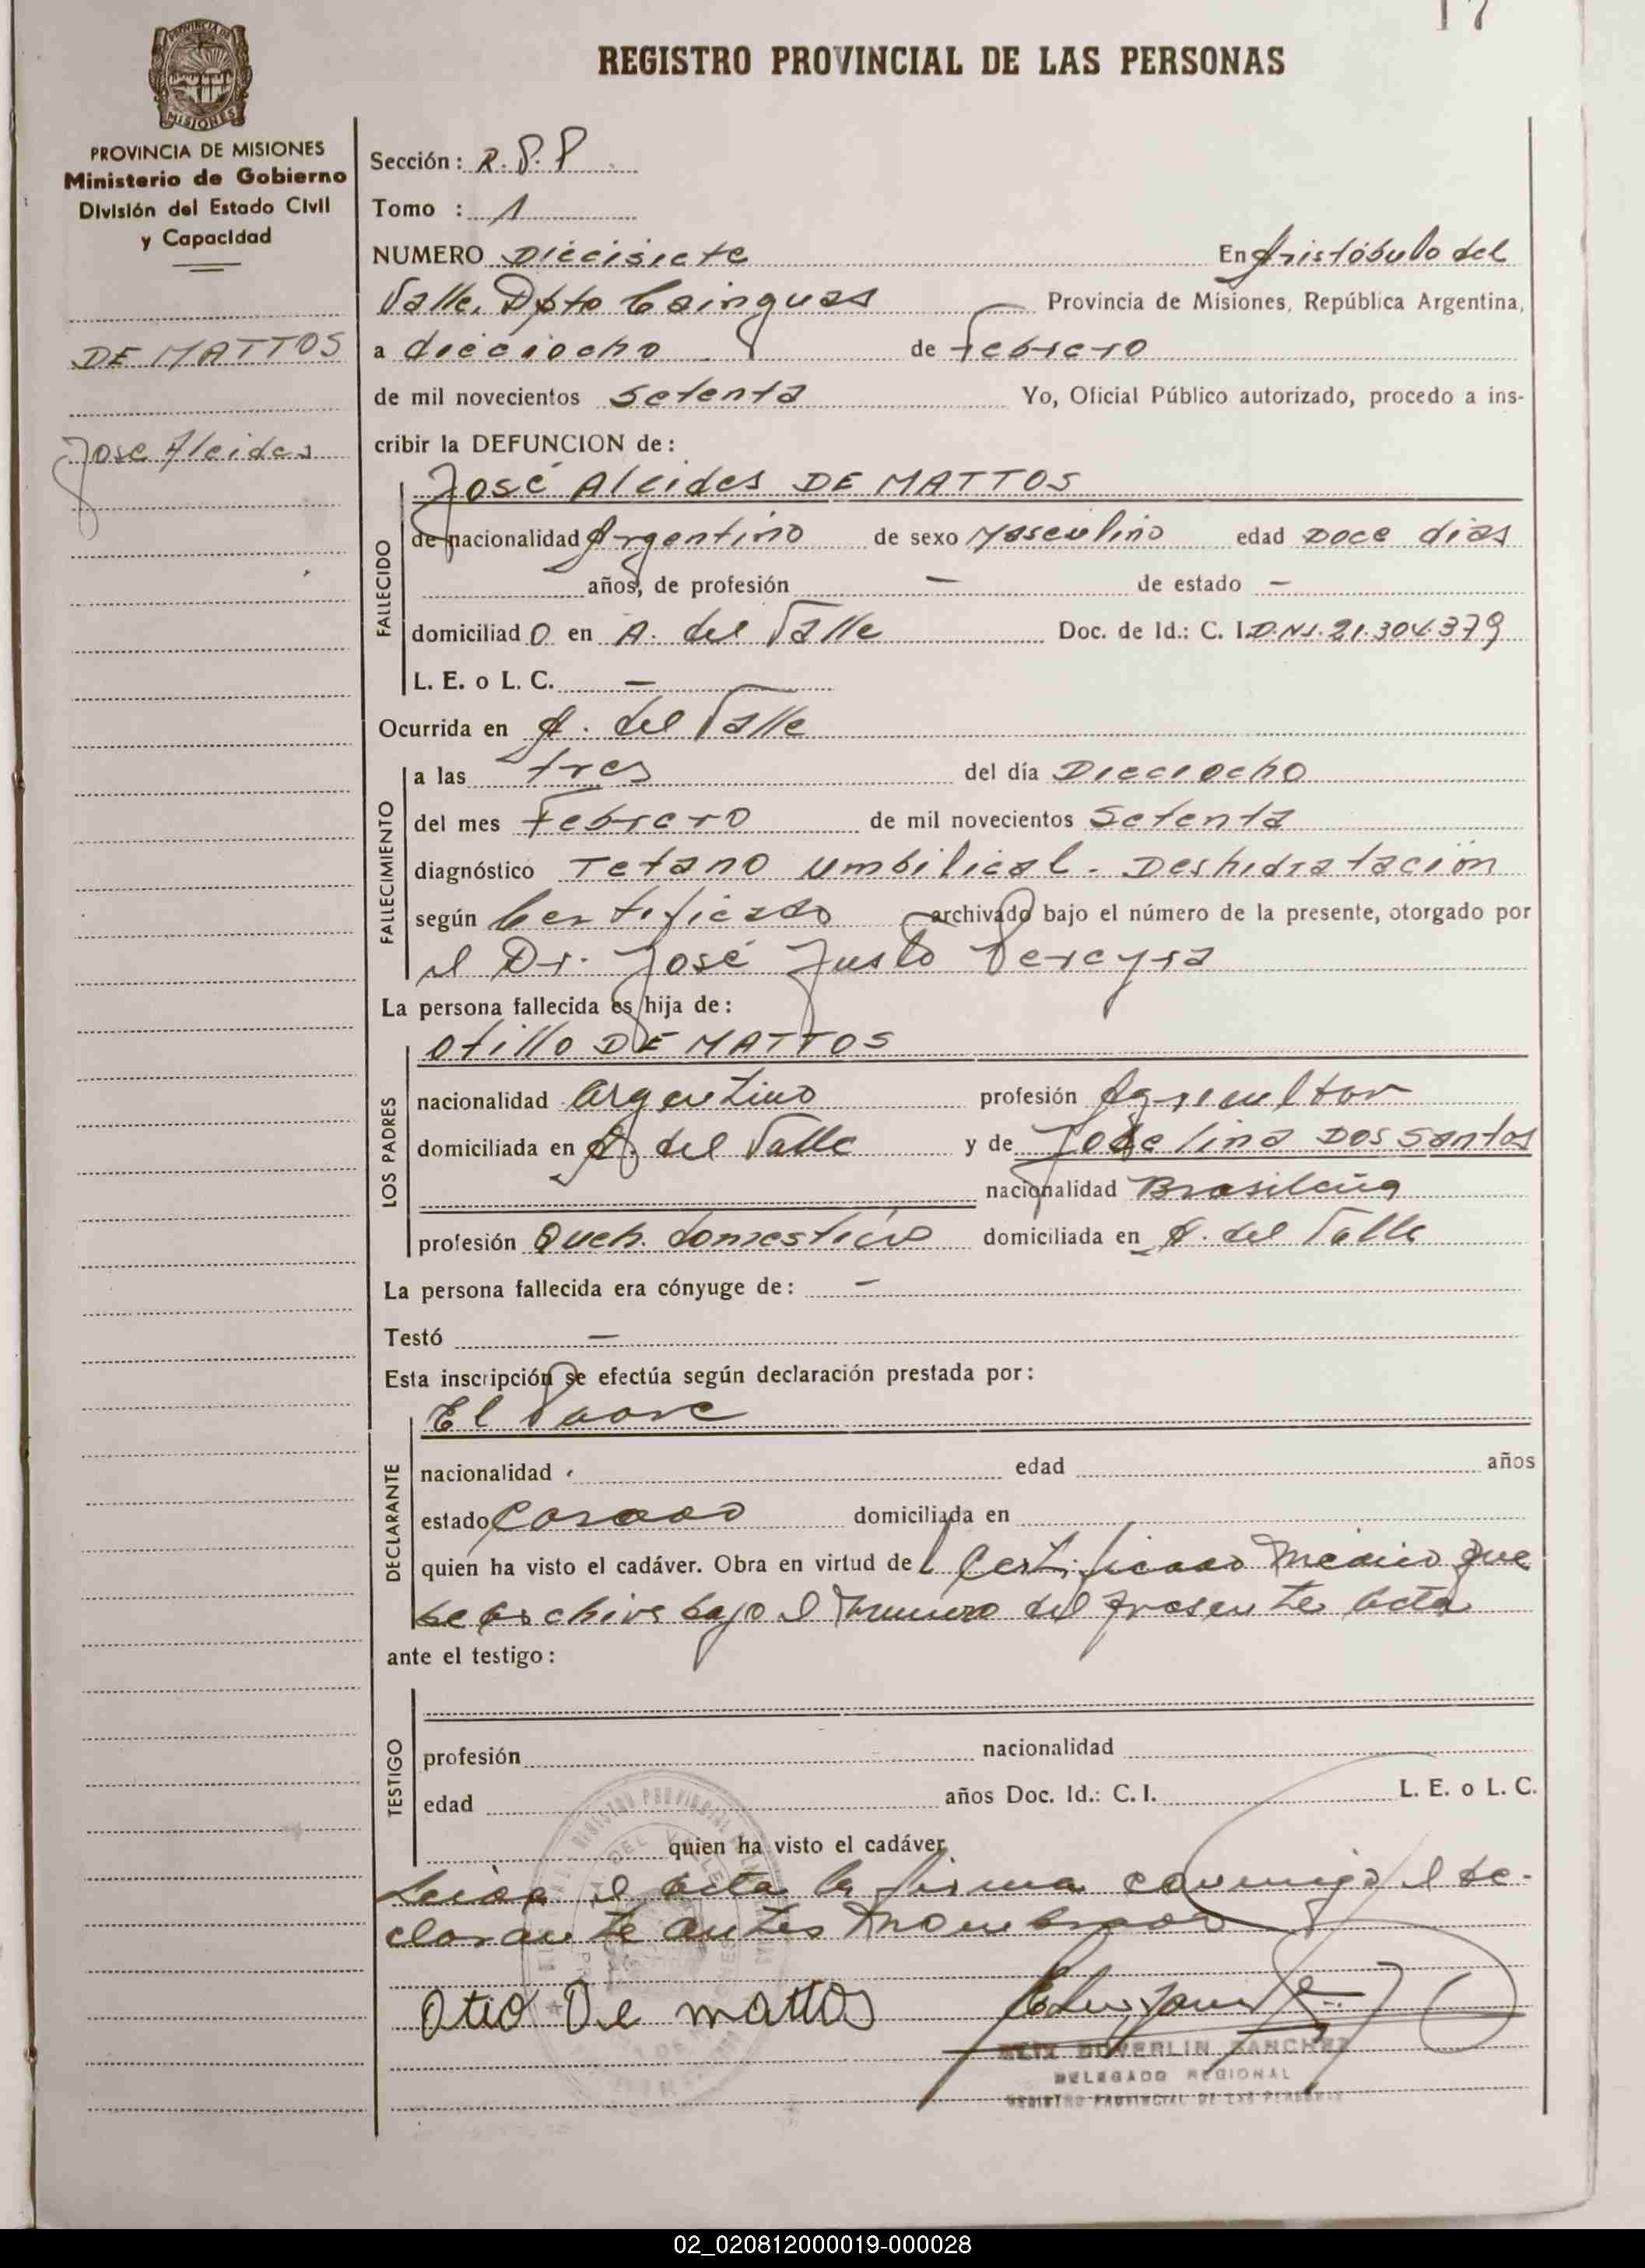 17
REGISTRO PROVINCIAL DE LAS PERSONAS
PROVINCIA DE MISIONES
Ministerio de Gobierno
División del Estado Civil
y Capacidad
DE MATTOS
Jose Alcides
Sección: R.P.P.
Tomo : 1
NUMERO Diecisiete En Aristóbulo del
Valle. Dpto Cainguas Provincia de Misiones, República Argentina,
a dieciocho de Febrero
de mil novecientos Setenta Yo, Oficial Público autorizado, procedo a ins-
cribir la DEFUNCION de:
José Alcides DE MATTOS
FALLECIDO
de nacionalidad Argentino de sexo Masculino edad Doce dias
años, de profesión — de estado —
domiciliado en A. del Valle Doc. de Id.: C. I. D.N.I. 21.304.379
L. E. o L. C. —
Ocurrida en A. del Valle
FALLECIMIENTO
a las tres del día Dieciocho
del mes Febrero de mil novecientos Setenta
diagnóstico Tetano umbilical - Deshidratación
según Certificado archivado bajo el número de la presente, otorgado por
el Dr. José Justo Pereyra
La persona fallecida es hija de:
LOS PADRES
Otilio DE MATTOS
nacionalidad Argentino profesión Agricultor
domiciliada en A. del Valle y de Joselina Dos Santos
nacionalidad Brasileña
profesión Queh. domestico domiciliada en A. del Valle
La persona fallecida era cónyuge de: —
Testó —
Esta inscripción se efectúa según declaración prestada por:
DECLARANTE
El Padre
nacionalidad edad años
estado Casado domiciliada en
quien ha visto el cadáver. Obra en virtud del Certificado Médico que
se archiva bajo el Numero del presente Acta
ante el testigo:
TESTIGO
profesión nacionalidad
edad años Doc. Id.: C. I. L. E. o L. C.
quien ha visto el cadáver.
Leida el acta la firma conmigo el de-
clarante antes Nombrado
Otio De mattos
SANCHEZ
DELEGADO REGIONAL
REGISTRO PROVINCIAL DE LAS PERSONAS
02_020812000019-000028